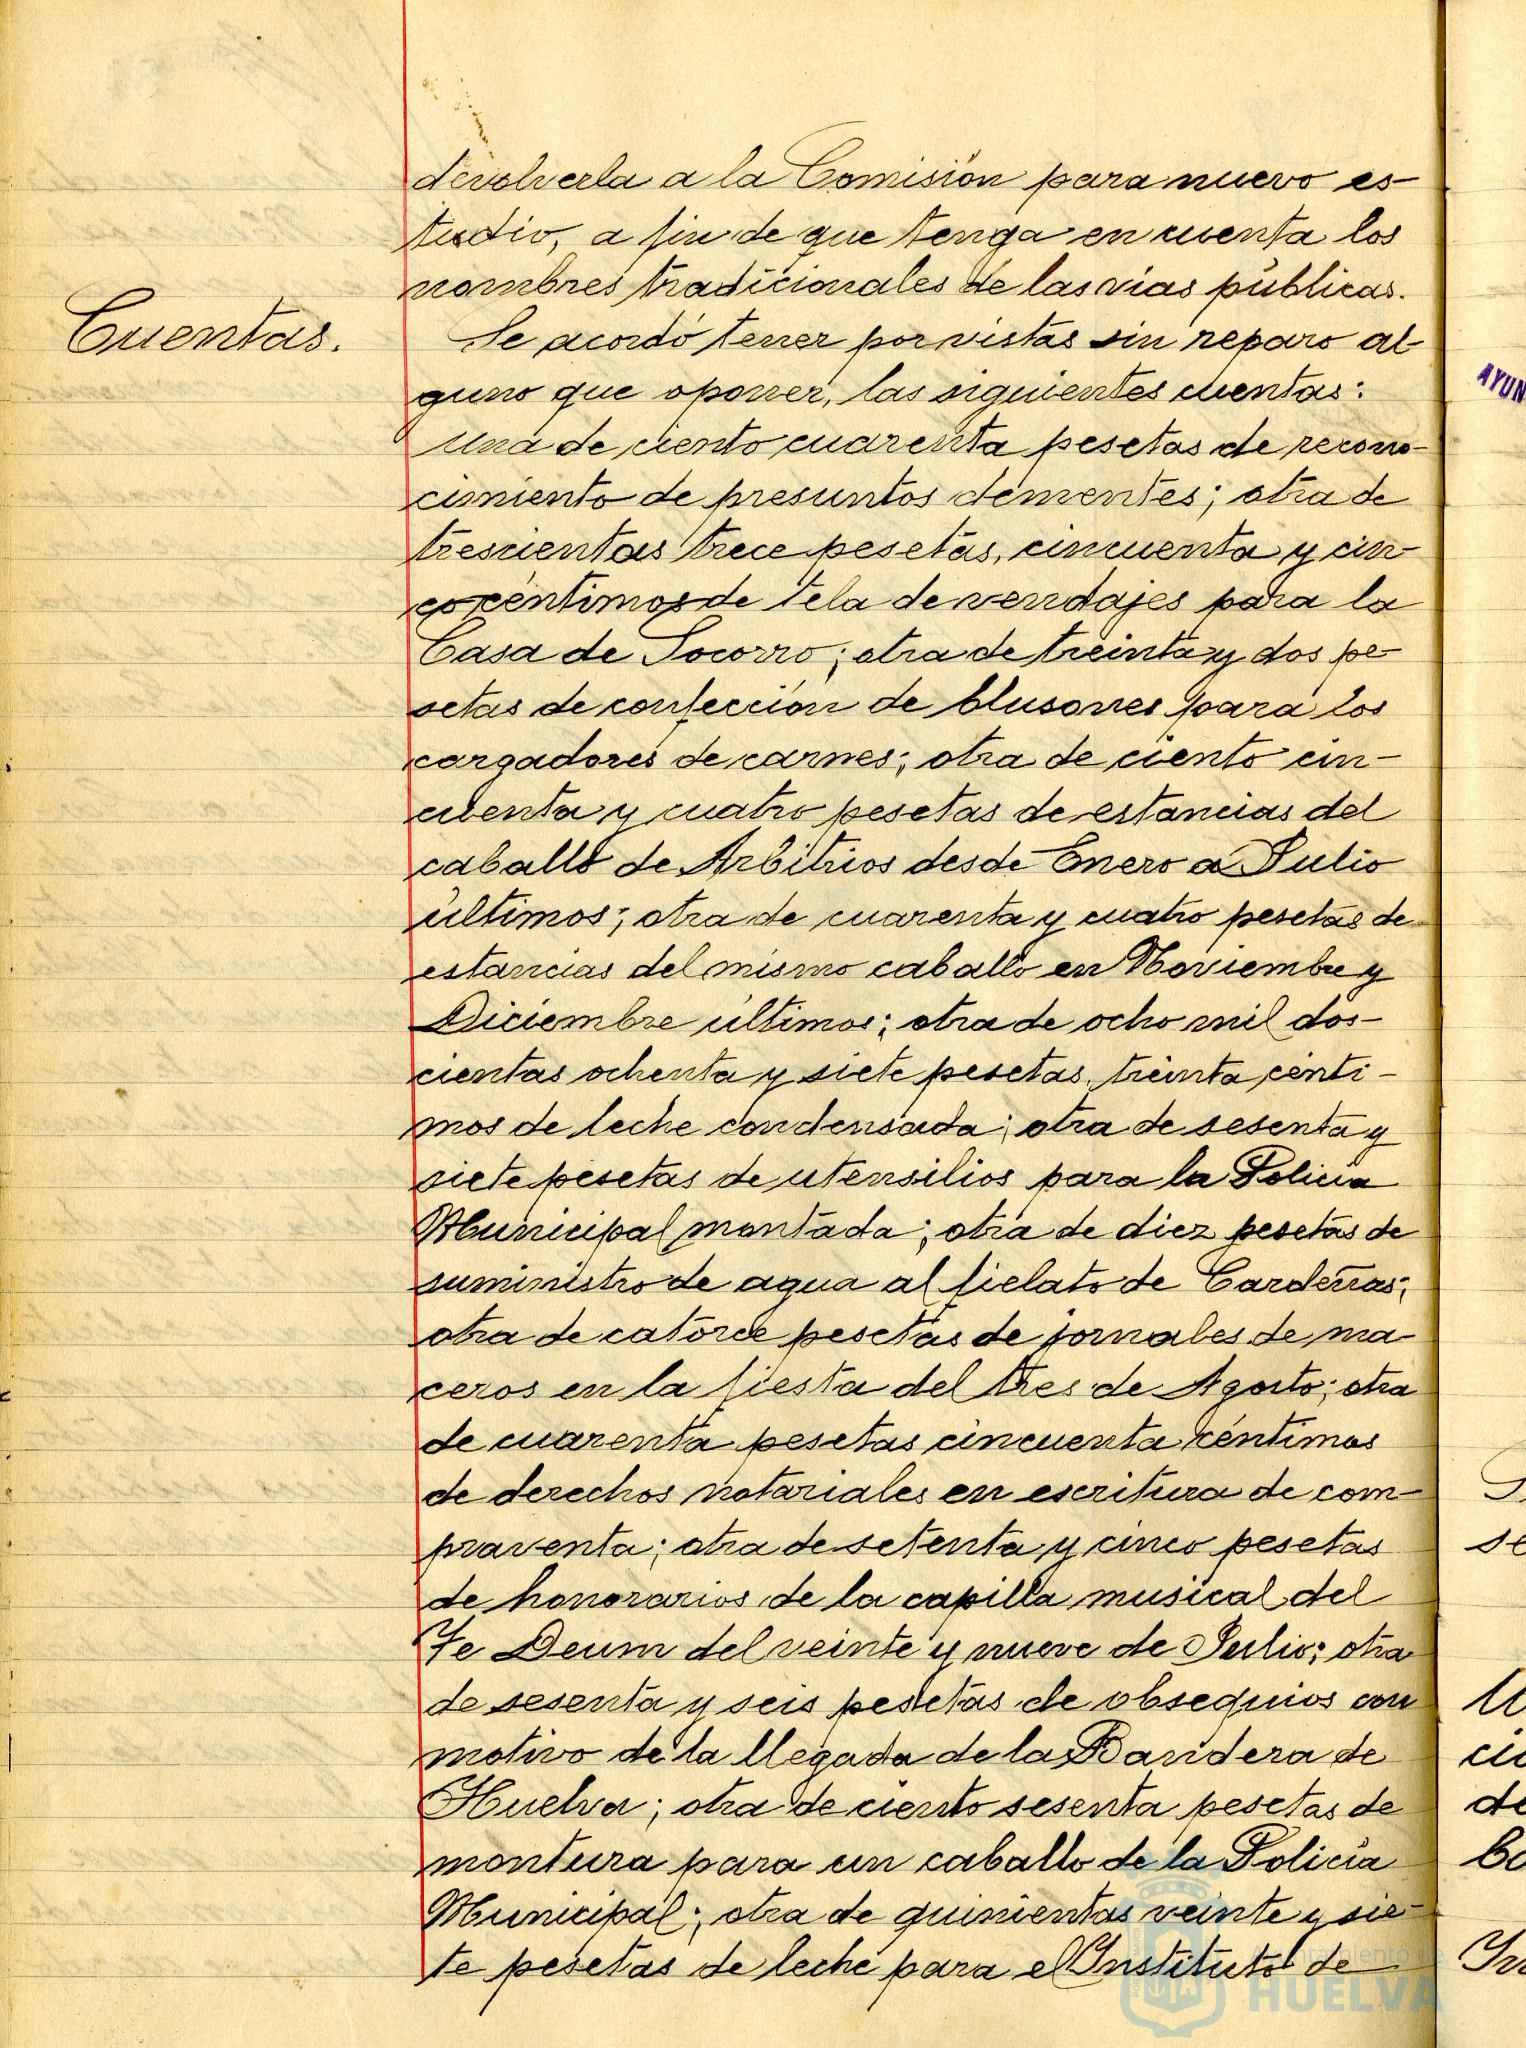 devolverla a la Comisión para nuevo es-
tudio, a fin de que tenga en cuenta los
nombres tradicionales de las vías públicas.
Cuentas.
Se acordó tener por vistas sin reparo al-
guno que oponer, las siguientes cuentas:
Una de ciento cuarenta pesetas de recono-
cimiento de presuntos dementes; otra de
trescientas trece pesetas, cincuenta y cin-
co céntimos de tela de vendajes para la
Casa de Socorro; otra de treinta y dos pe-
setas de confección de blusones para los
cargadores de carnes; otra de ciento cin-
cuenta y cuatro pesetas de estancias del
caballo de Arbitrios desde Enero a Julio
últimos; otra de cuarenta y cuatro pesetas de
estancias del mismo caballo en Noviembre y
Diciembre últimos; otra de ocho mil dos-
cientas ochenta y siete pesetas, treinta cénti-
mos de leche condensada; otra de sesenta y
siete pesetas de utensilios para la Policía
Municipal montada; otra de diez pesetas de
suministro de agua al fielato de Cardeñas;
otra de catorce pesetas de jornales de ma-
ceros en la fiesta del tres de Agosto; otra
de cuarenta pesetas cincuenta céntimos
de derechos notariales en escritura de com-
praventa; otra de setenta y cinco pesetas
de honorarios de la capilla musical del
Te Deum del veinte y nueve de Julio; otra
de sesenta y seis pesetas de obsequios con
motivo de la llegada de la Bandera de
Huelva; otra de ciento sesenta pesetas de
montura para un caballo de la Policía
Municipal; otra de quinientas veinte y sie-
te pesetas de leche para el Instituto de
Ayuntamiento de
HUELVA
AYUN